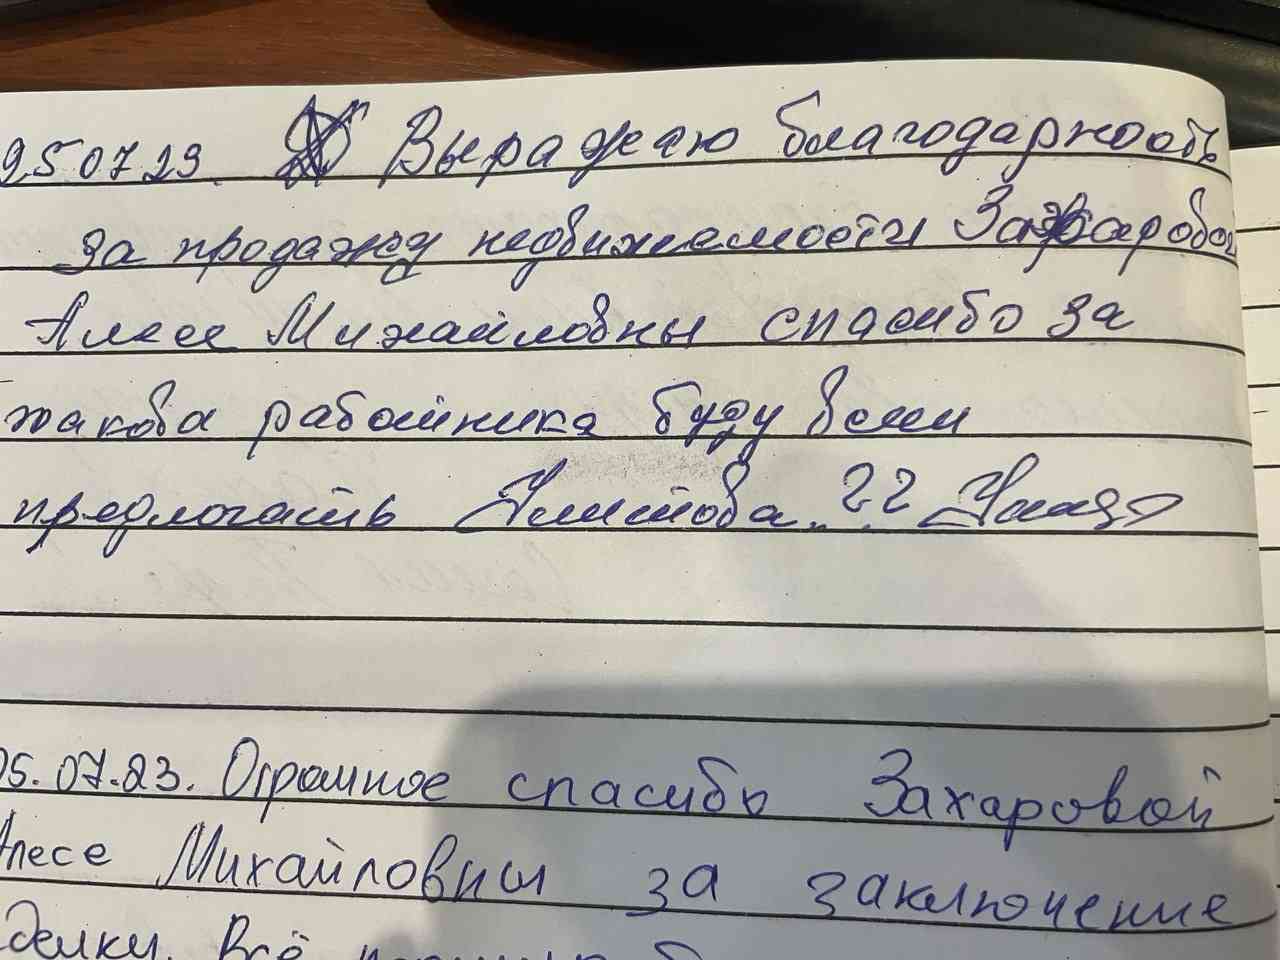 25 07 23 Выражаю благодарность
за продажу недвижемости Захаровой
Алесе Михайловны спасибо за
такова работника буду всем
предлогать
05.07.23. Огромное спасибо Захаровой
Алесе Михайловны за заключение
сделку. Всё